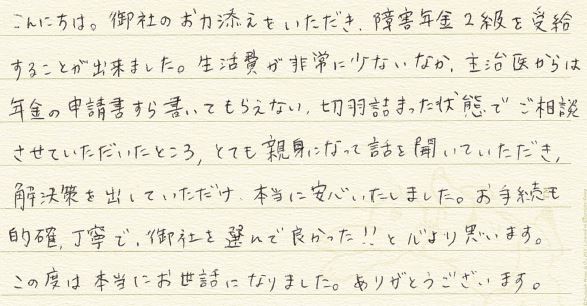 こんにちは。御社のお力添えをいただき、障害年金2級を受給
することが出来ました。生活費が非常に少ないなか、主治医からは
年金の申請書すら書いてもらえない、切羽詰まった状態でご相談
させていただいたところ、とても親身になって話を聞いていただき、
解決策を出していただけ、本当に安心いたしました。お手続も
的確、丁寧で、御社を選んで良かった!!と心より思います。
この度は本当にお世話になりました。ありがとうございます。